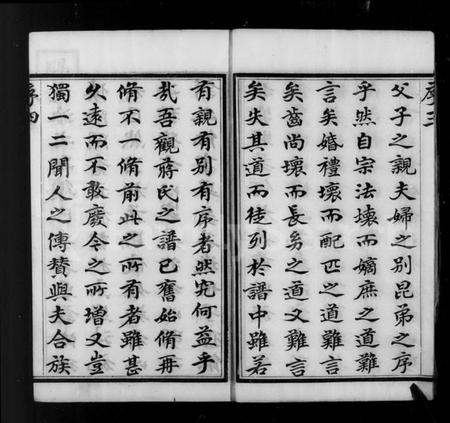 序三
父子之親夫婦之别昆弟之序
乎然自宗法壞而嫡庶之道難
言矣婚禮壞而配匹之道難言
矣齒尚壞而長幼之道又難言
矣失其道而徒列於譜中雖若
有親有别有序者然究何益乎
哉吾觀蔣氏之譜已舊始脩再
脩不一脩前此之所有者雖甚
久遠而不敢廢今之所增又豈
獨一二聞人之傳贊與夫合族
序四